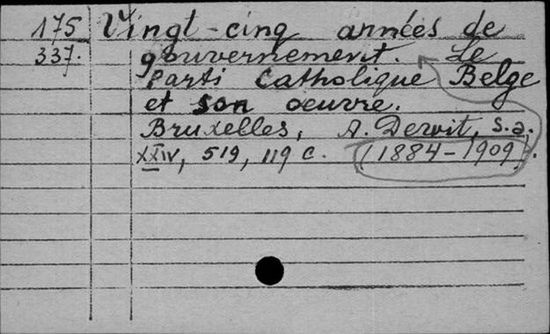 175 Vingt-cinq années de
337. gouvernement. Le
Parti Catholique Belge
et son oeuvre.
Bruxelles, A. Dewit, s.a.
XXIV, 519, 119 c. (1884-1909).